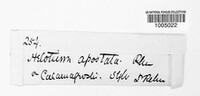 US NATIONAL FUNGUS COLLECTIONS
1005022
254.
Helotium apostata. Rhm
a Calamagrosti. Sylv Dr Rehm